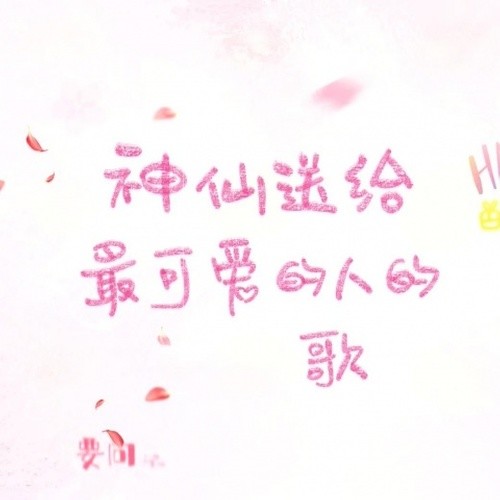 神仙送给
最可爱的人的
歌